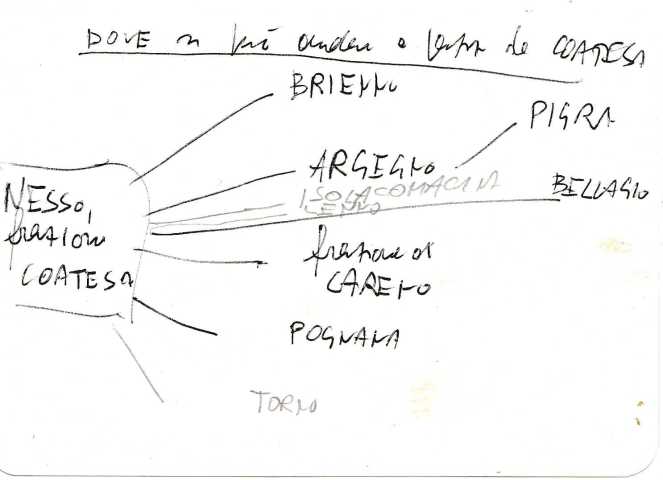 DOVE si può andare a partire da COATESA
BRIENNO
PIGRA
ARGEGNO
ISOLA COMACINA
BELLAGIO
LENNO
NESSO,
frazione
COATESA
frazione di
CARENO
POGNANA
TORNO